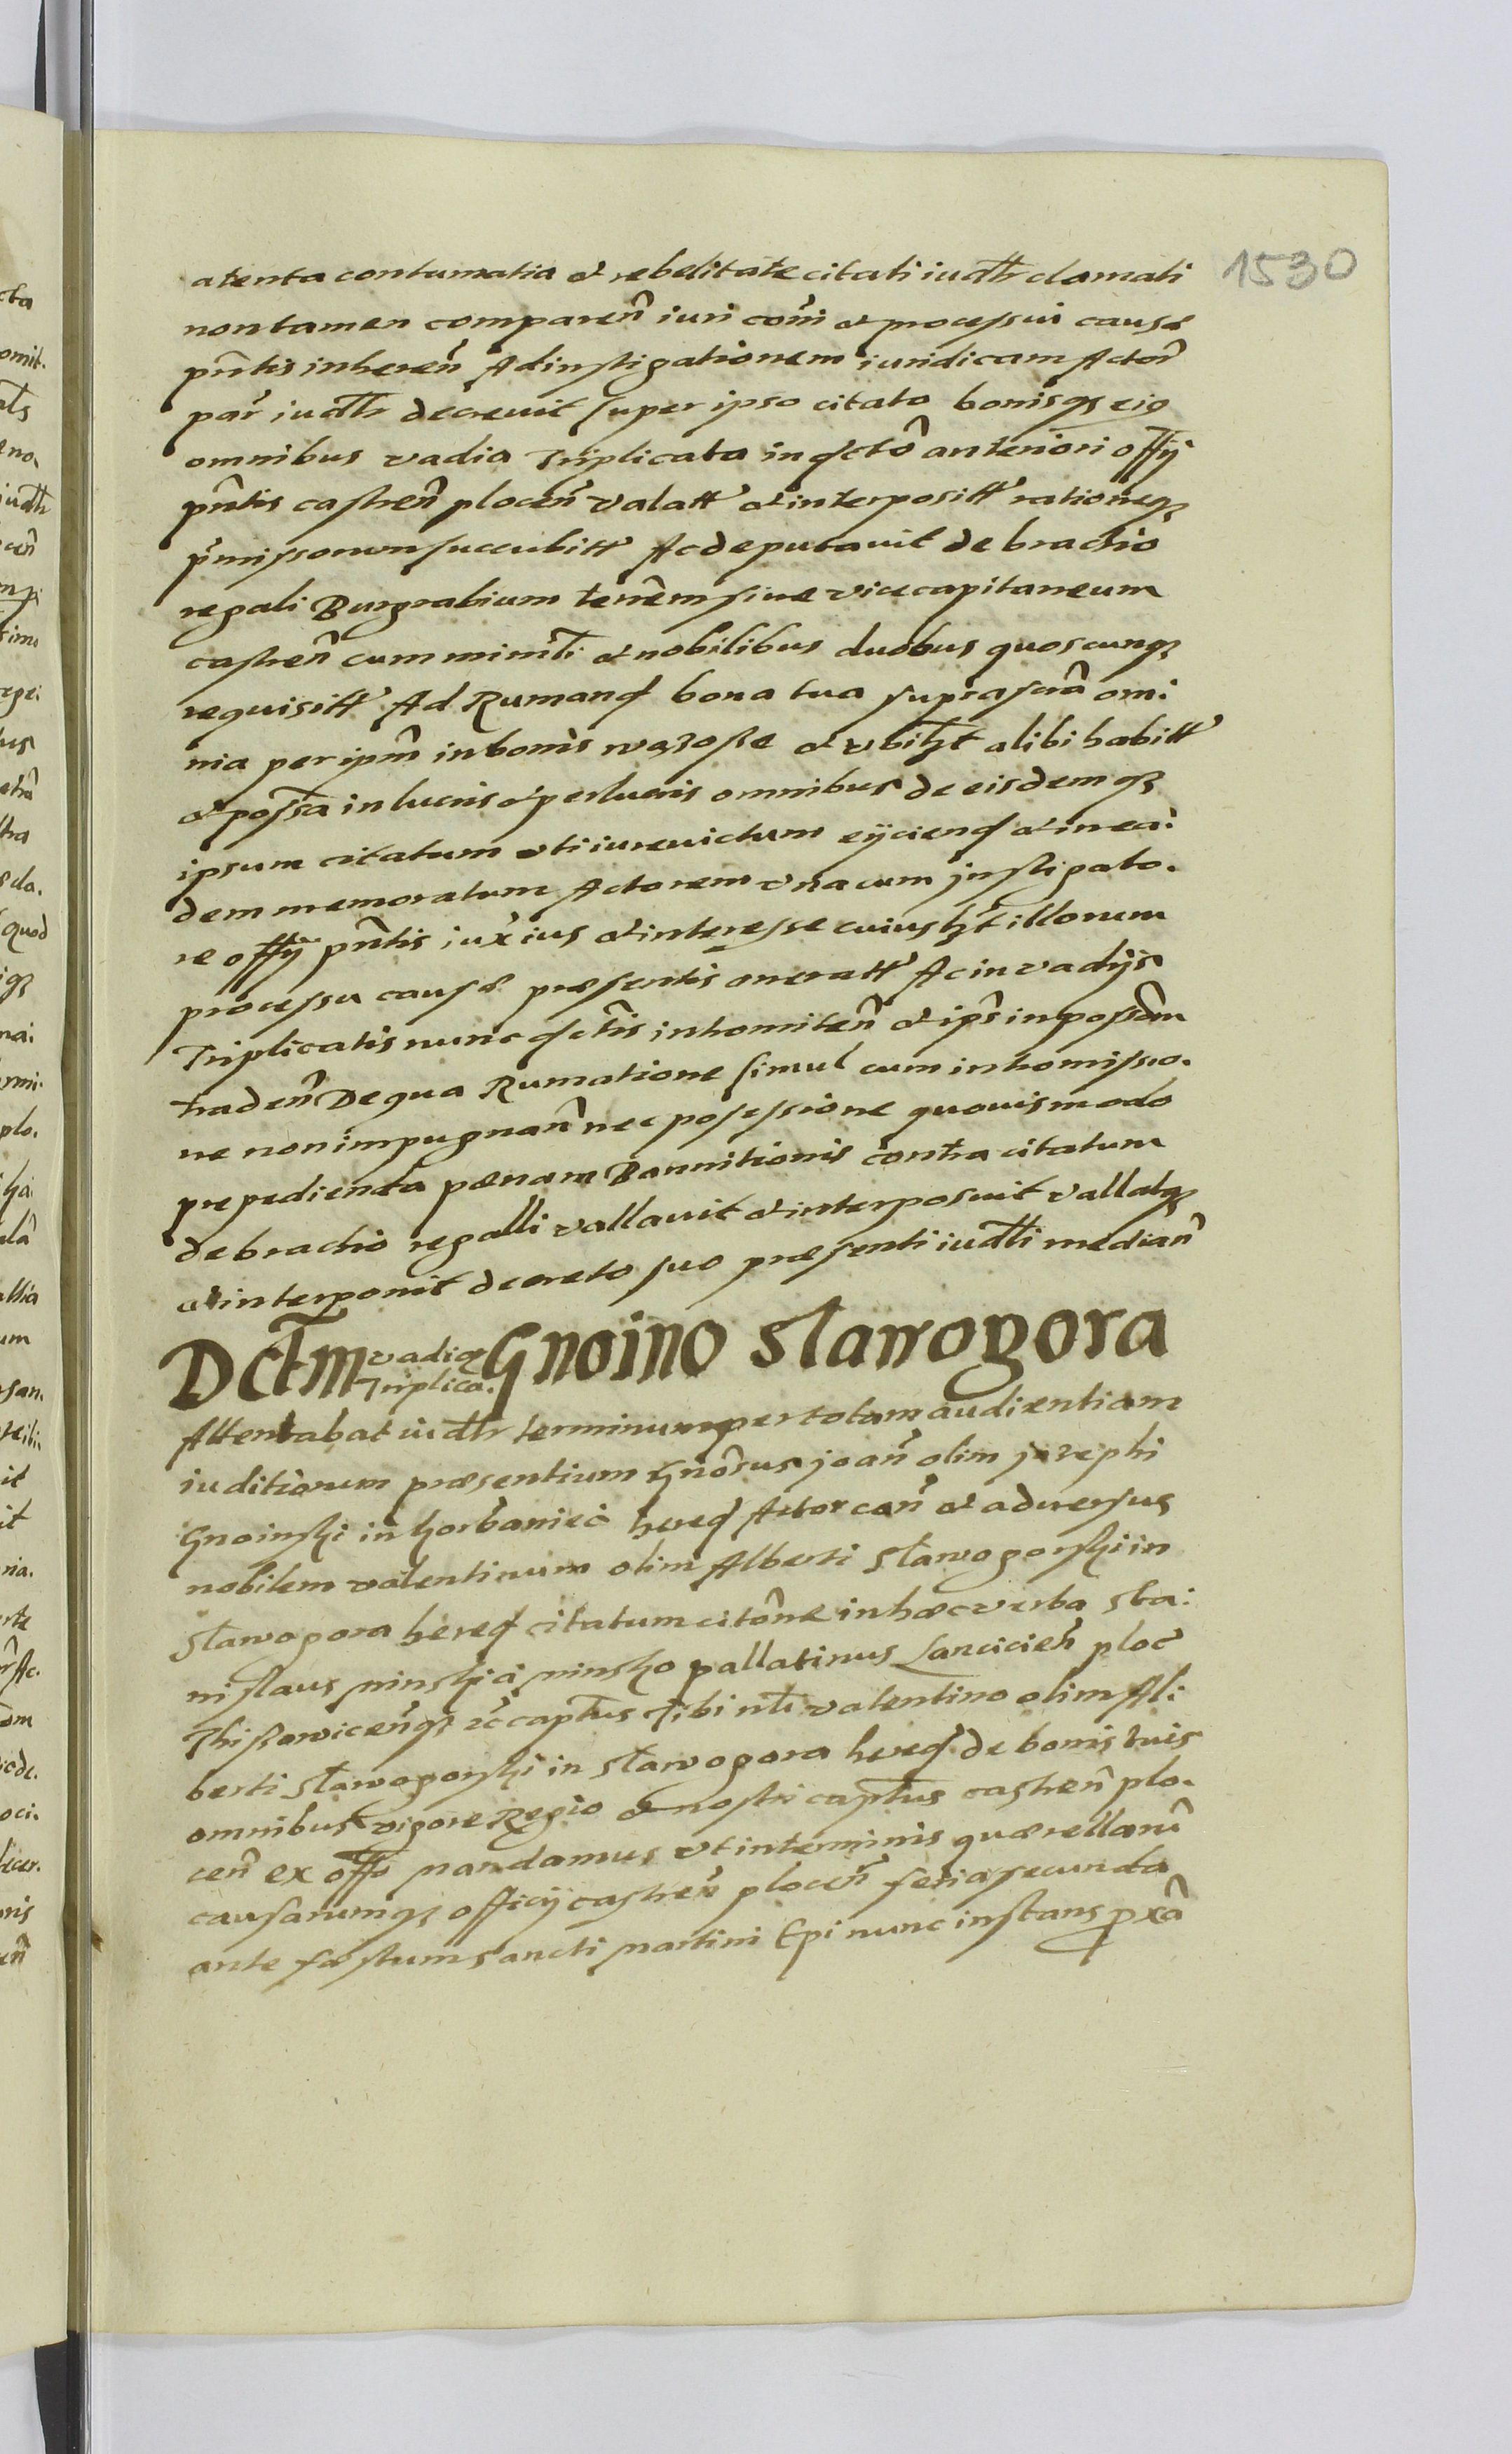 1530
atenta contumatia et rebelitate citati iudtr clamati
non tamen comparen̄ iuri com̄i et processui causæ
pn̄tis inheren̄ Ad instigationem iuridicam Actor̄
par̄ iudtr decreuit super ipso citato bonisq₃ eiꝰ
omnibus vadia Triplicata in dctō anteriori offy
pn̄tis castren̄ plocen̄ valatt et interpositt rationeq₃
p̄missorum succubitt Ac deputauit de brachio
regali Burgrabium tenēm siue vicecapitaneum
castren̄ cum minrl̄i et nobilibus duobus quoscunq₃
requisitt Ad Rumand bona tua suprascrā om̄i
nia per ipm̄ in bonis wązosse et vbilzt alibi habitt
et possa in lucris et perlucris omnibus de eisdemq₃
ipsum citatum vti iureuictum eyciend et in ea:
dem memoratum Actorem vna cum jnstigato.
re offy pn̄tis iux̄ ius et interesse cuiuslzt illorum
processu causæ præsentis oneratt Ac in vadijs
Triplicatis nunc dctis intromiten̄ et ips̄ in possōm
traden̄ De qua Rumatione simul cum intromissio.
ne non impugnan̄ nec possessione quouismodo
prepedienda pænam Bannitionis contra citatum
de brachio regalli vallauit et interposuit vallatq₃
et interponit decreto suo præsenti iudtli median̄
Dctm vadioꝝ Triplica. Gnoino Sławogora
Attentabat iudtr terminum per totam audientiam
iuditiorum præsentium Gnōrsus joan̄ olim jozephi
Gnoinski in Gorbaniec hered Actor con̄ et aduersus
nobilem valentinum olim Alberti Sławogorski in
Sławogora hered citatum citōne in hæc verba Sta:
nislaus minski a minsko pallatinus Lancicien̄ ploc̄
Thisowicen̄q₃ zc captus Tibi nl̄i valentino olim Al:
berti Sławogorski in Sławogora hered de bonis tuis
omnibus vigore Regio et nostri captus castren̄ plo.
cen̄ ex offo mandamus vt in terminis quærellarū
causarumq₃ officij castren̄ plocen̄ feria secunda
ante fæstum Sancti martini Epi nunc instans pxā